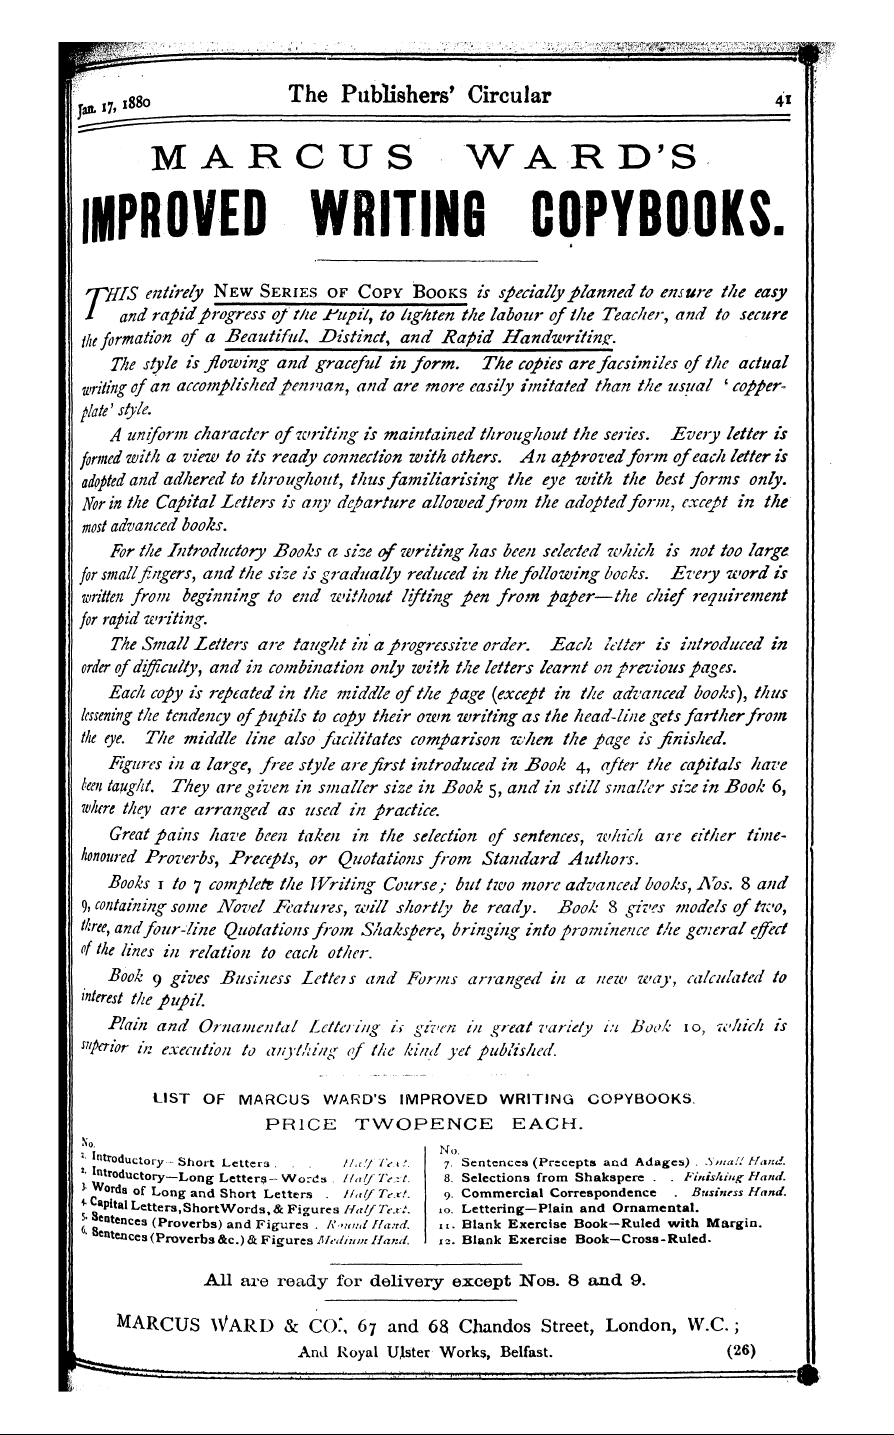 Jan. 17, 1880 The Publishers' Circular 41
MARCUS WARD'S
IMPROVED WRITING COPYBOOKS.
THIS entirely NEW SERIES OF COPY BOOKS is specially planned to ensure the easy
and rapid progress of the Pupil, to lighten the labour of the Teacher, and to secure
the formation of a Beautiful, Distinct, and Rapid Handwriting.
The style is flowing and graceful in form. The copies are facsimiles of the actual
writing of an accomplished penman, and are more easily imitated than the usual ' copper-
plate' style.
A uniform character of writing is maintained throughout the series. Every letter is
formed with a view to its ready connection with others. An approved form of each letter is
adopted and adhered to throughout, thus familiarising the eye with the best forms only.
Nor in the Capital Letters is any departure allowed from the adopted form, except in the
most advanced books.
For the Introductory Books a size of writing has been selected which is not too large
for small fingers, and the size is gradually reduced in the following books. Every word is
written from beginning to end without lifting pen from paper—the chief requirement
for rapid writing.
The Small Letters are taught in a progressive order. Each letter is introduced in
order of difficulty, and in combination only with the letters learnt on previous pages.
Each copy is repeated in the middle of the page (except in the advanced books), thus
lessening the tendency of pupils to copy their own writing as the head-line gets farther from
the eye. The middle line also facilitates comparison when the page is finished.
Figures in a large, free style are first introduced in Book 4, after the capitals have
been taught. They are given in smaller size in Book 5, and in still smaller size in Book 6,
where they are arranged as used in practice.
Great pains have been taken in the selection of sentences, which are either time-
honoured Proverbs, Precepts, or Quotations from Standard Authors.
Books 1 to 7 complete the Writing Course; but two more advanced books, Nos. 8 and
9, containing some Novel Features, will shortly be ready. Book 8 gives models of two,
three, and four-line Quotations from Shakspere, bringing into prominence the general effect
of the lines in relation to each other.
Book 9 gives Business Letters and Forms arranged in a new way, calculated to
interest the pupil.
Plain and Ornamental Lettering is given in great variety in Book 10, which is
superior in execution to anything of the kind yet published.
LIST OF MARCUS WARD'S IMPROVED WRITING COPYBOOKS.
PRICE TWOPENCE EACH.
No.
Introductory—Short Letters . . Half Text.
Introductory—Long Letters—Words . Half Text.
3. Words of Long and Short Letters . Half Text.
4. Capital Letters, Short Words, & Figures Half Text.
5. Sentences (Proverbs) and Figures . Round Hand.
6. Sentences (Proverbs &c.) & Figures Medium Hand.
No.
7. Sentences (Precepts and Adages) . Small Hand.
8. Selections from Shakspere . . Finishing Hand.
9. Commercial Correspondence . Business Hand.
10. Lettering—Plain and Ornamental.
11. Blank Exercise Book—Ruled with Margin.
12. Blank Exercise Book—Cross-Ruled.
All are ready for delivery except Nos. 8 and 9.
MARCUS WARD & CO., 67 and 68 Chandos Street, London, W.C. ;
And Royal Ulster Works, Belfast. (26)